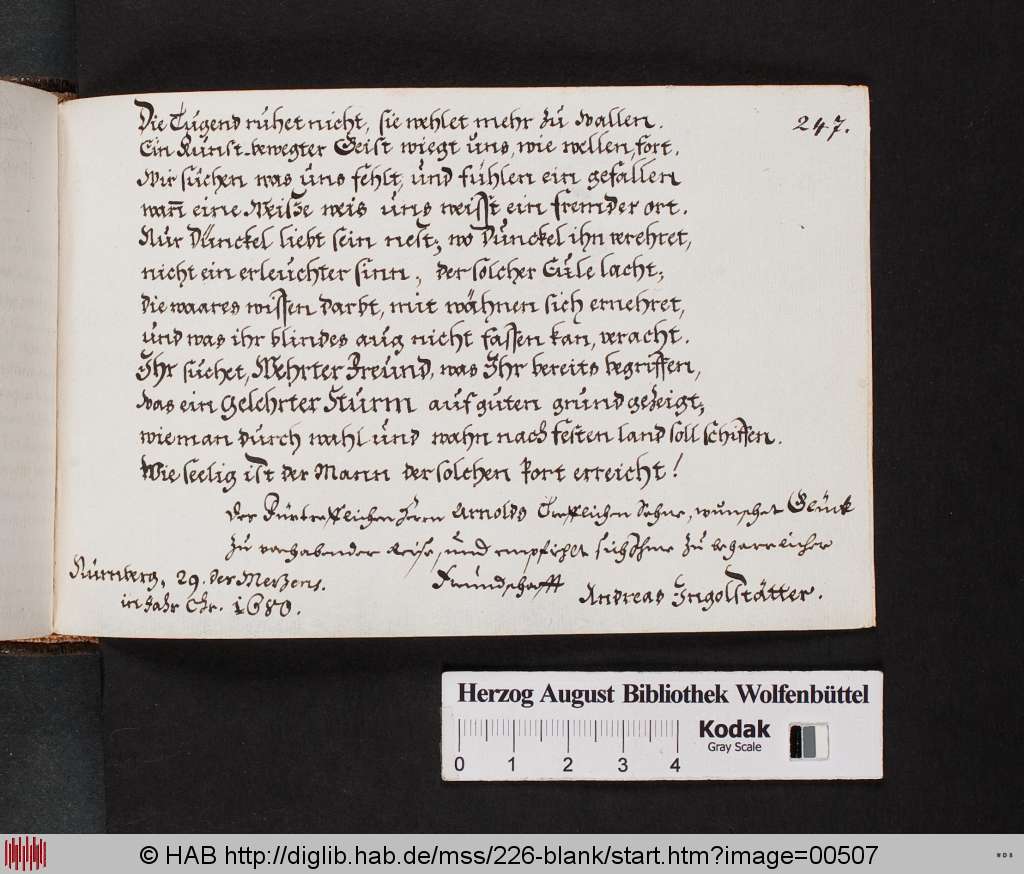 247.
Die Tugend ruhet nicht, sie wehlet mehr zu wallen.
Ein Kunst-bewegter Geist wiegt uns, wie wellen, fort.
Wir suchen was uns fehlt, und fühlen ein gefallen
wan̄ eine Weiße weis uns weisst ein fremder ort.
Nur Dünckel liebt sein nest; wo Dunckel ihn verehret,
nicht ein erleuchter sinn, der solcher Eule lacht;
die waares wissen darbt, mit wähnen sich ernehret,
und was ihr blindes aug nicht fassen kan, veracht.
Ihr suchet, Wehrter Freund, was Ihr bereits begriffen,
was ein gelehrter Sturm auf guten grund gezeigt;
wie man durch wahl und wahn nach festen land soll schiffen.
Wie seelig ist der Mann der solchen Port erreicht!
Des Fürtrefflichen Herrn Arnolds Trefflichen Sohne, wünschet Glück
zu vorhabender Reise, und empfihlt sich Ihme zu beharrlicher
Freundschafft
Andreas Ingolstätter.
Nürnberg, 29. des Merzens.
im Jahr Chr. 1680.
Herzog August Bibliothek Wolfenbüttel
Kodak
Gray Scale
0 1 2 3 4
© HAB http://diglib.hab.de/mss/226-blank/start.htm?image=00507
WDB